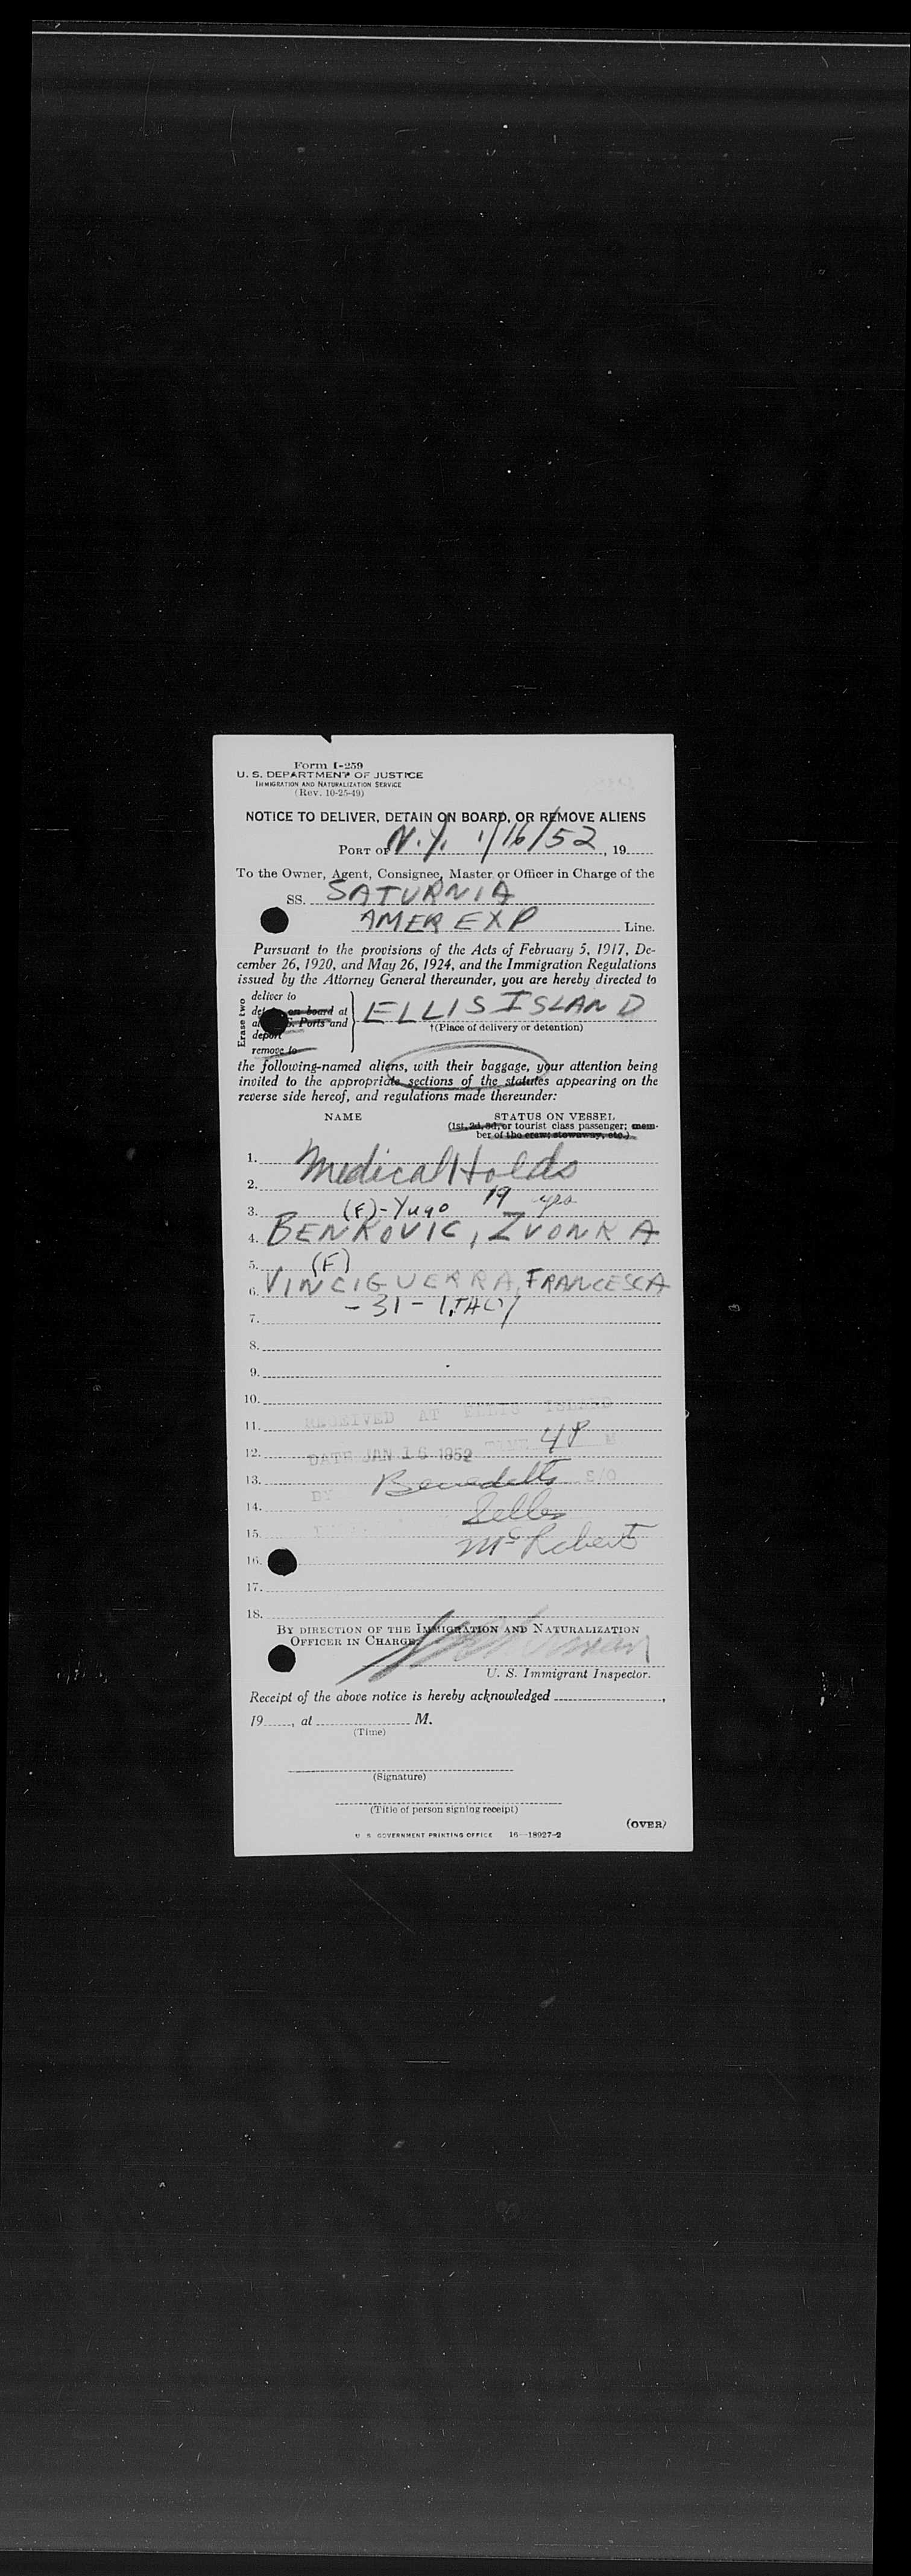 Form I-259
U. S. DEPARTMENT OF JUSTICE
IMMIGRATION AND NATURALIZATION SERVICE
(Rev. 10-25-49)
NOTICE TO DELIVER, DETAIN ON BOARD, OR REMOVE ALIENS
PORT OF N.Y. 1/16/52, 19
To the Owner, Agent, Consignee, Master or Officer in Charge of the
SS. SATURNIA
AMER EXP Line.
Pursuant to the provisions of the Acts of February 5, 1917, De-
cember 26, 1920, and May 26, 1924, and the Immigration Regulations
issued by the Attorney General thereunder, you are hereby directed to
Erase two
deliver to
on board at
Ports and
deport
remove to
ELLIS ISLAND
†(Place of delivery or detention)
the following-named aliens, with their baggage, your attention being
invited to the appropriate sections of the statutes appearing on the
reverse side hereof, and regulations made thereunder:
NAME STATUS ON VESSEL
(1st, 2d, 3d, or tourist class passenger; mem-
ber of the crew; stowaway, etc.)
1. Medical Holds
2.
3. (F)-Yugo 19 yrs
4. BENKOVIC, ZVONKA
5. (F)
6. VINCIGUERRA, FRANCESCA
- 31 - ITALY
7.
8.
9.
10.
RECEIVED AT ELLIS ISLAND
11.
12. DATE JAN 16 1952 TIME 4P M
13. BY Benedetti S/O
14. Selles
15. McRoberts
16.
17.
18.
BY DIRECTION OF THE IMMIGRATION AND NATURALIZATION
OFFICER IN CHARGE.
U. S. Immigrant Inspector.
Receipt of the above notice is hereby acknowledged ,
19 , at M.
(Time)
(Signature)
(Title of person signing receipt)
(OVER)
U. S. GOVERNMENT PRINTING OFFICE 16—18927-2